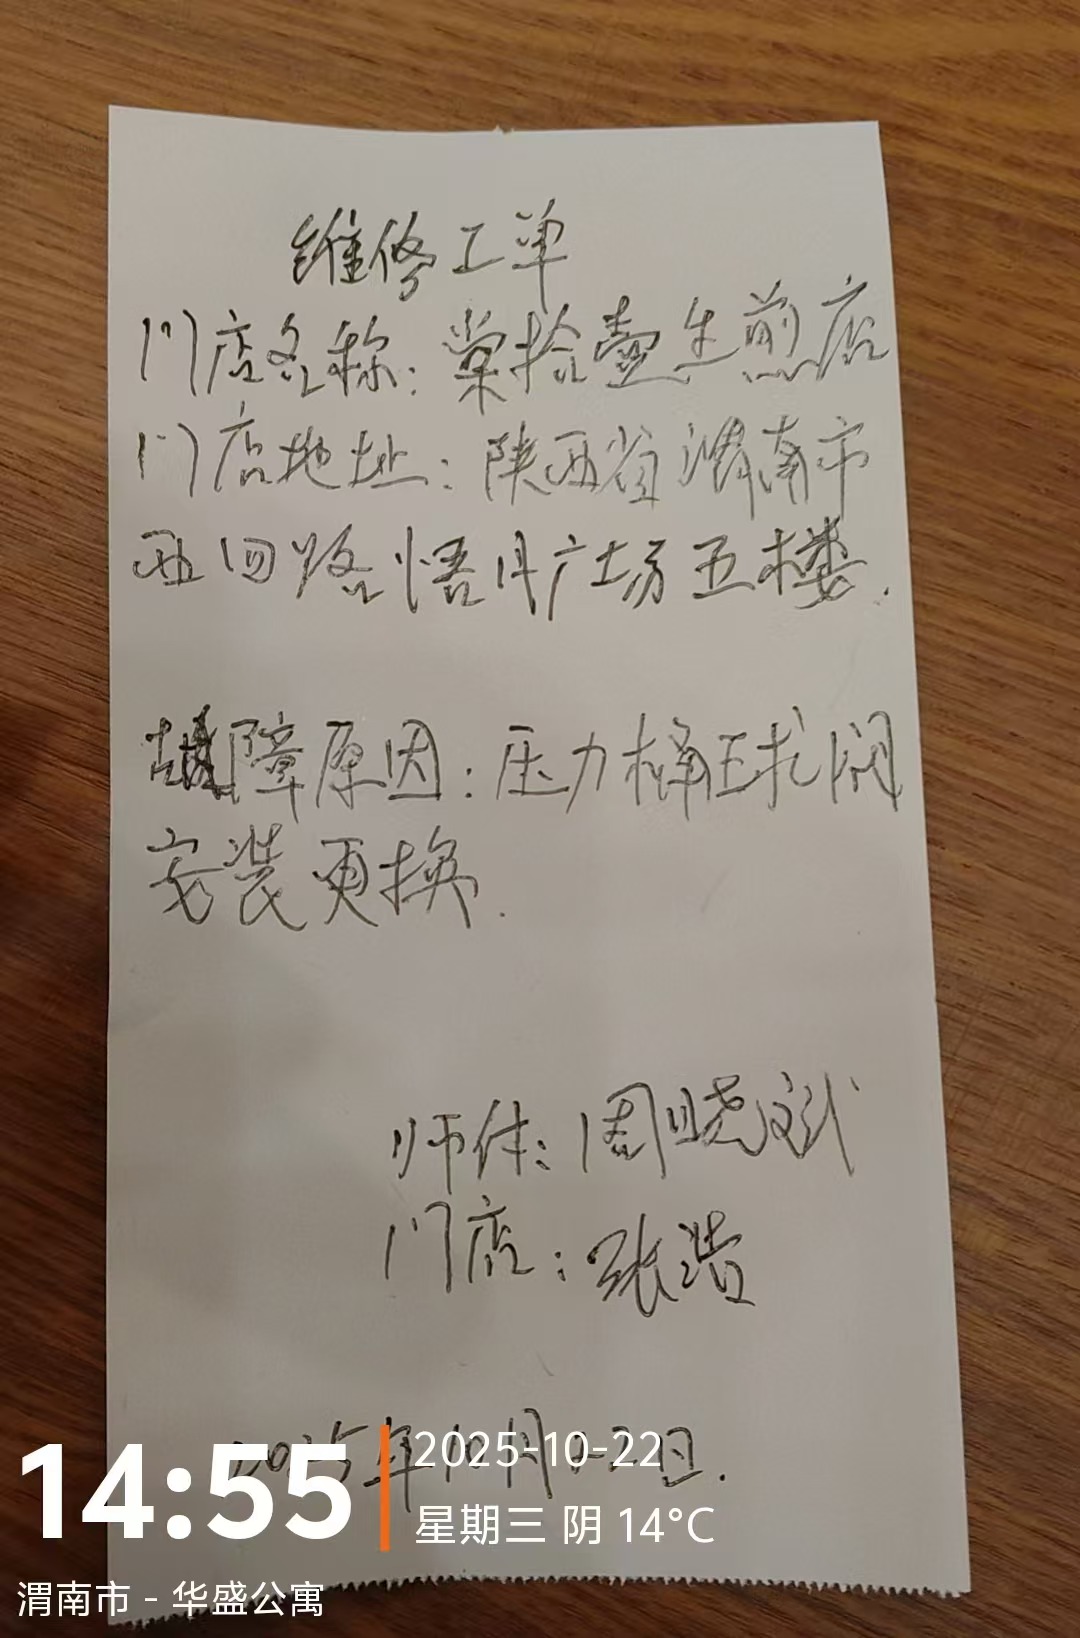 维修工单
门店名称：棠拾壹生煎店
门店地址：陕西省渭南市
西四路悟月广场五楼.
故障原因：压力桶球阀
安装更换.
师傅：周晓斌
门店：张浩
2025年10月22日.
14:55
2025-10-22
星期三 阴 14°C
渭南市 - 华盛公寓